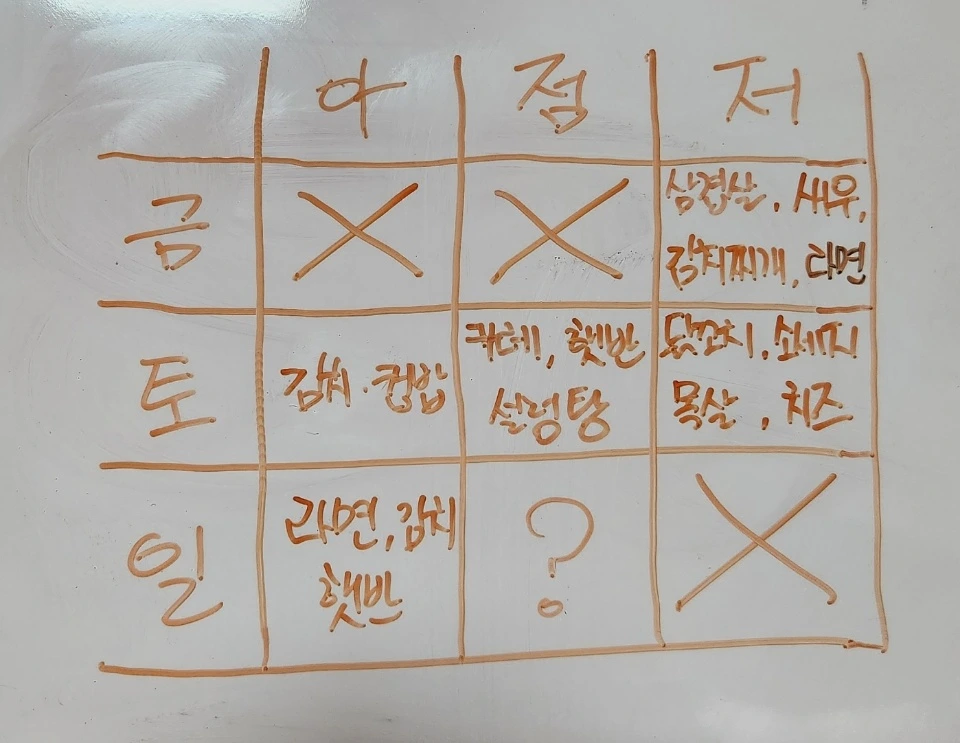 아 점 저
금 X X 삼겹살, 새우,
김치찌개, 라면
토 김치. 컵밥 카레, 햇반 닭꼬치, 소세지
설렁탕 목살, 치즈
일 라면, 김치 ? X
햇반